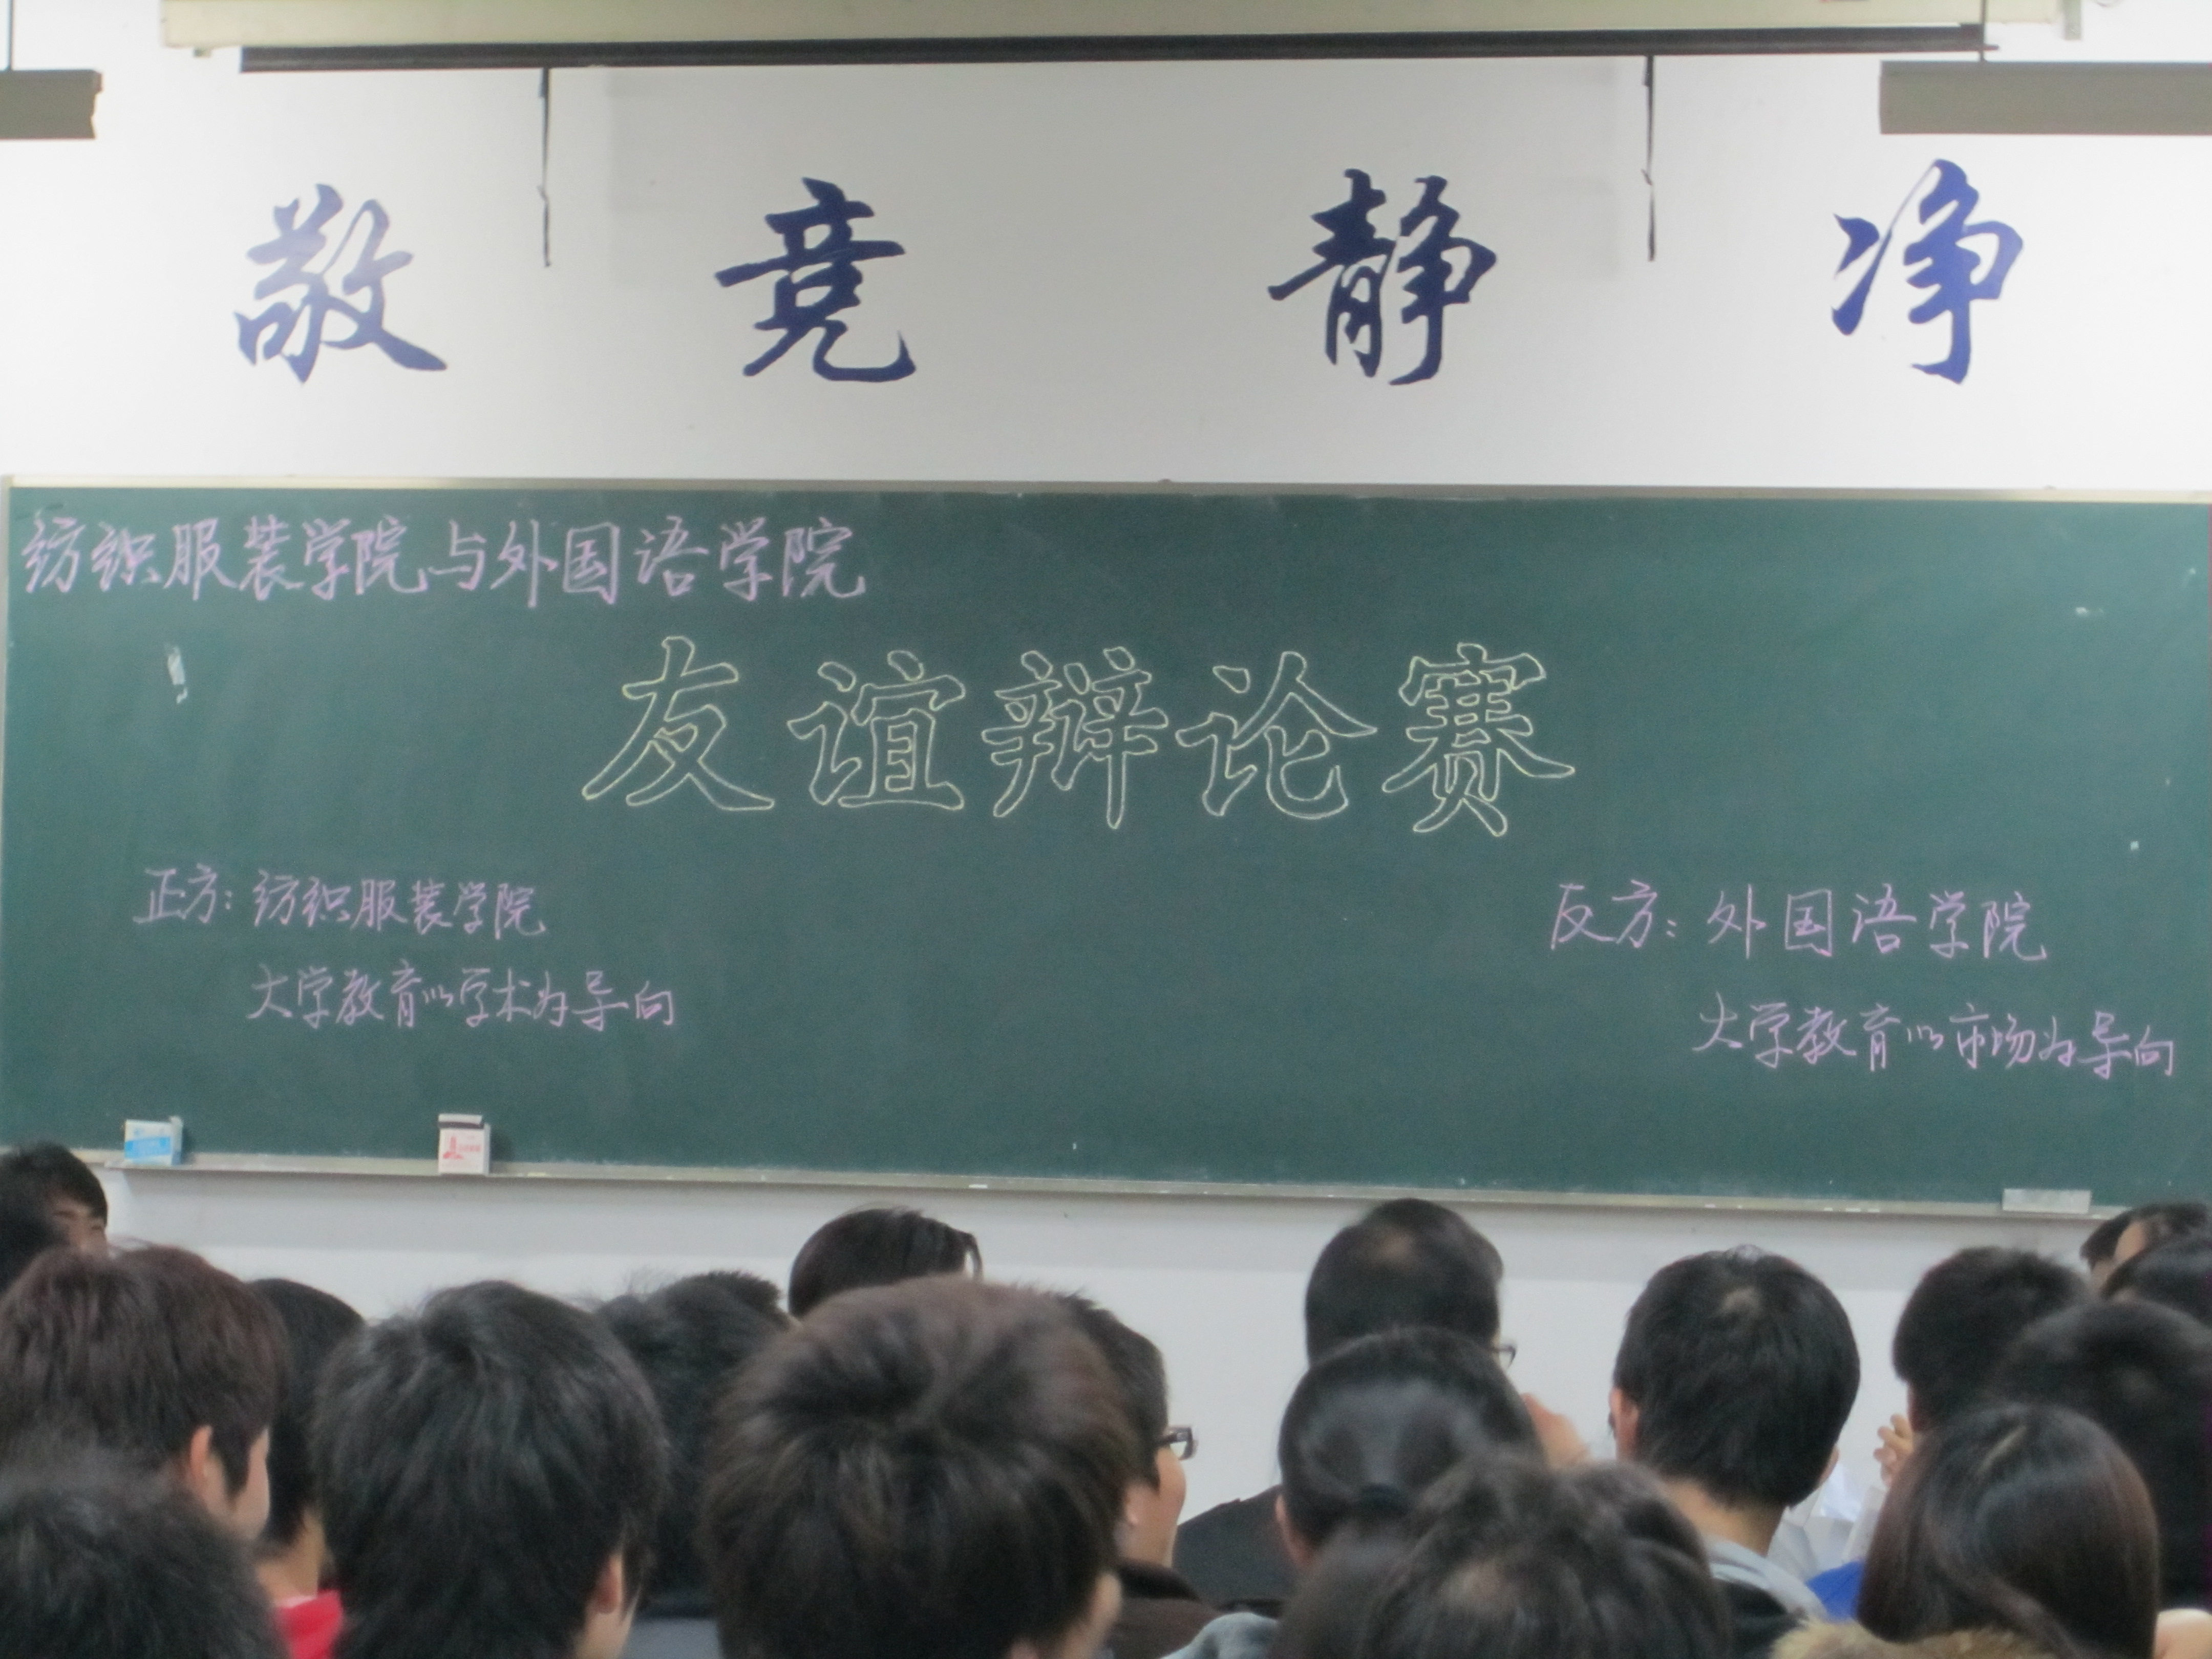 敬 竞 静 净
纺织服装学院与外国语学院
友谊辩论赛
正方：纺织服装学院
大学教育以学术为导向
反方：外国语学院
大学教育以市场为导向